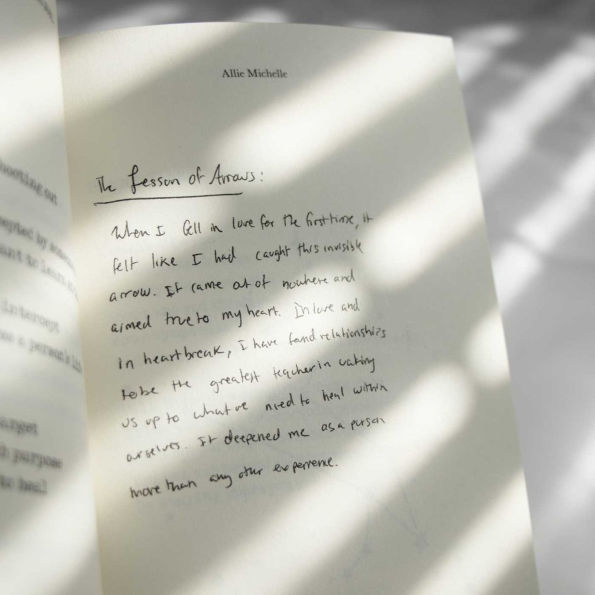 Allie Michelle
The Lesson of Arrows:
When I fell in love for the first time, it
felt like I had caught this invisible
arrow. It came out of nowhere and
aimed true to my heart. In love and
in heartbreak, I have found relationships
to be the greatest teacher in waking
us up to what we need to heal within
ourselves. It deepened me as a person
more than any other experience.
hooting out
cepted by
ant to learn
intercept
a person's
arget
h purpose
to heal